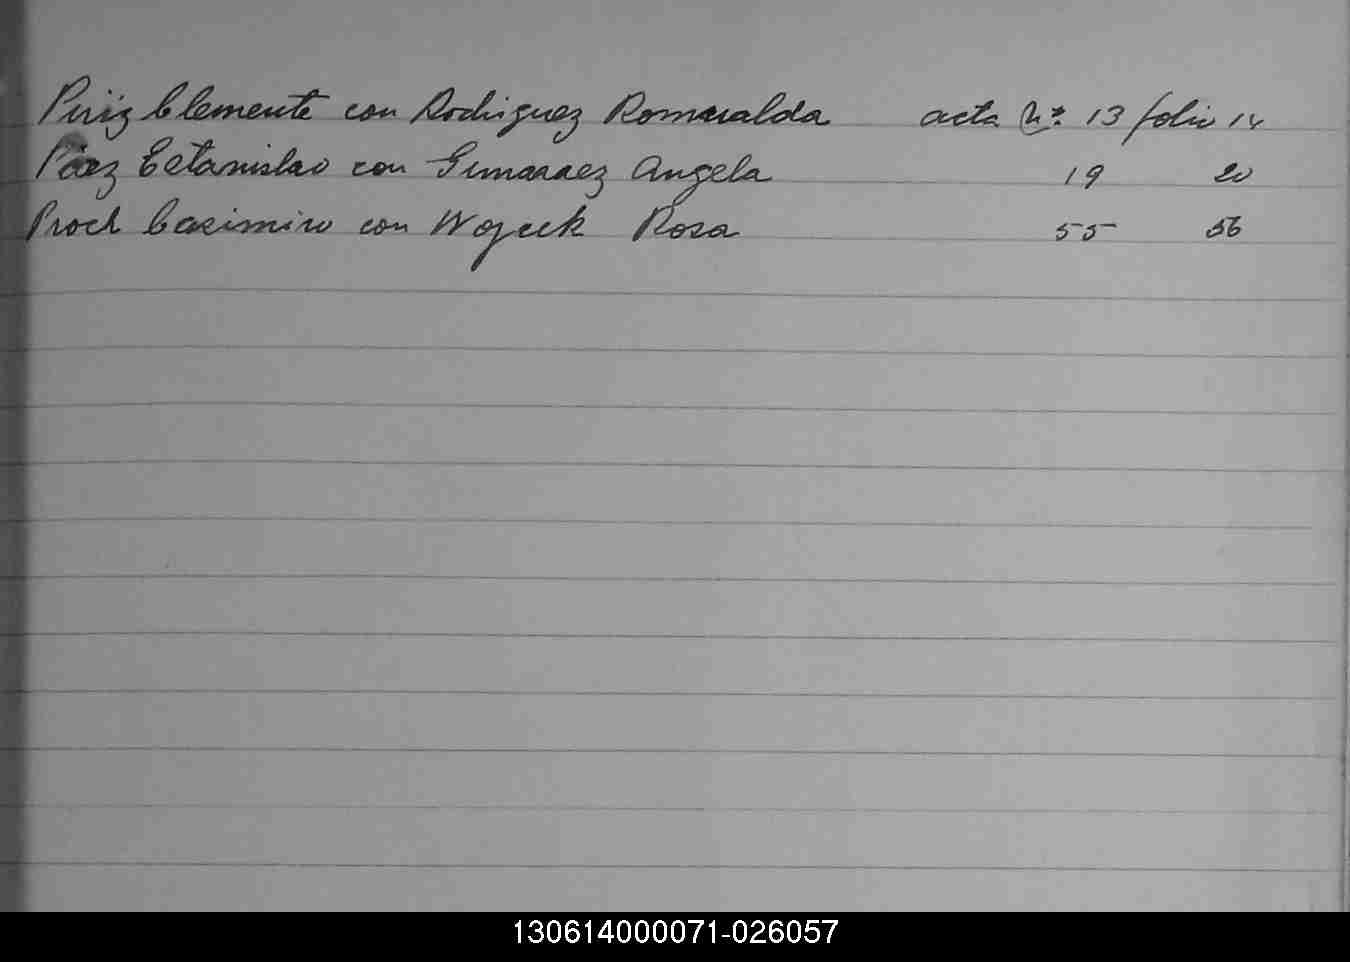 Piriz Clemente con Rodriguez Romualda acta Nº 13 folio 14
Páez Estanislao con Gimaraez Angela 19 20
Proch Casimiro con Wojeck Rosa 55 56
130614000071-026057